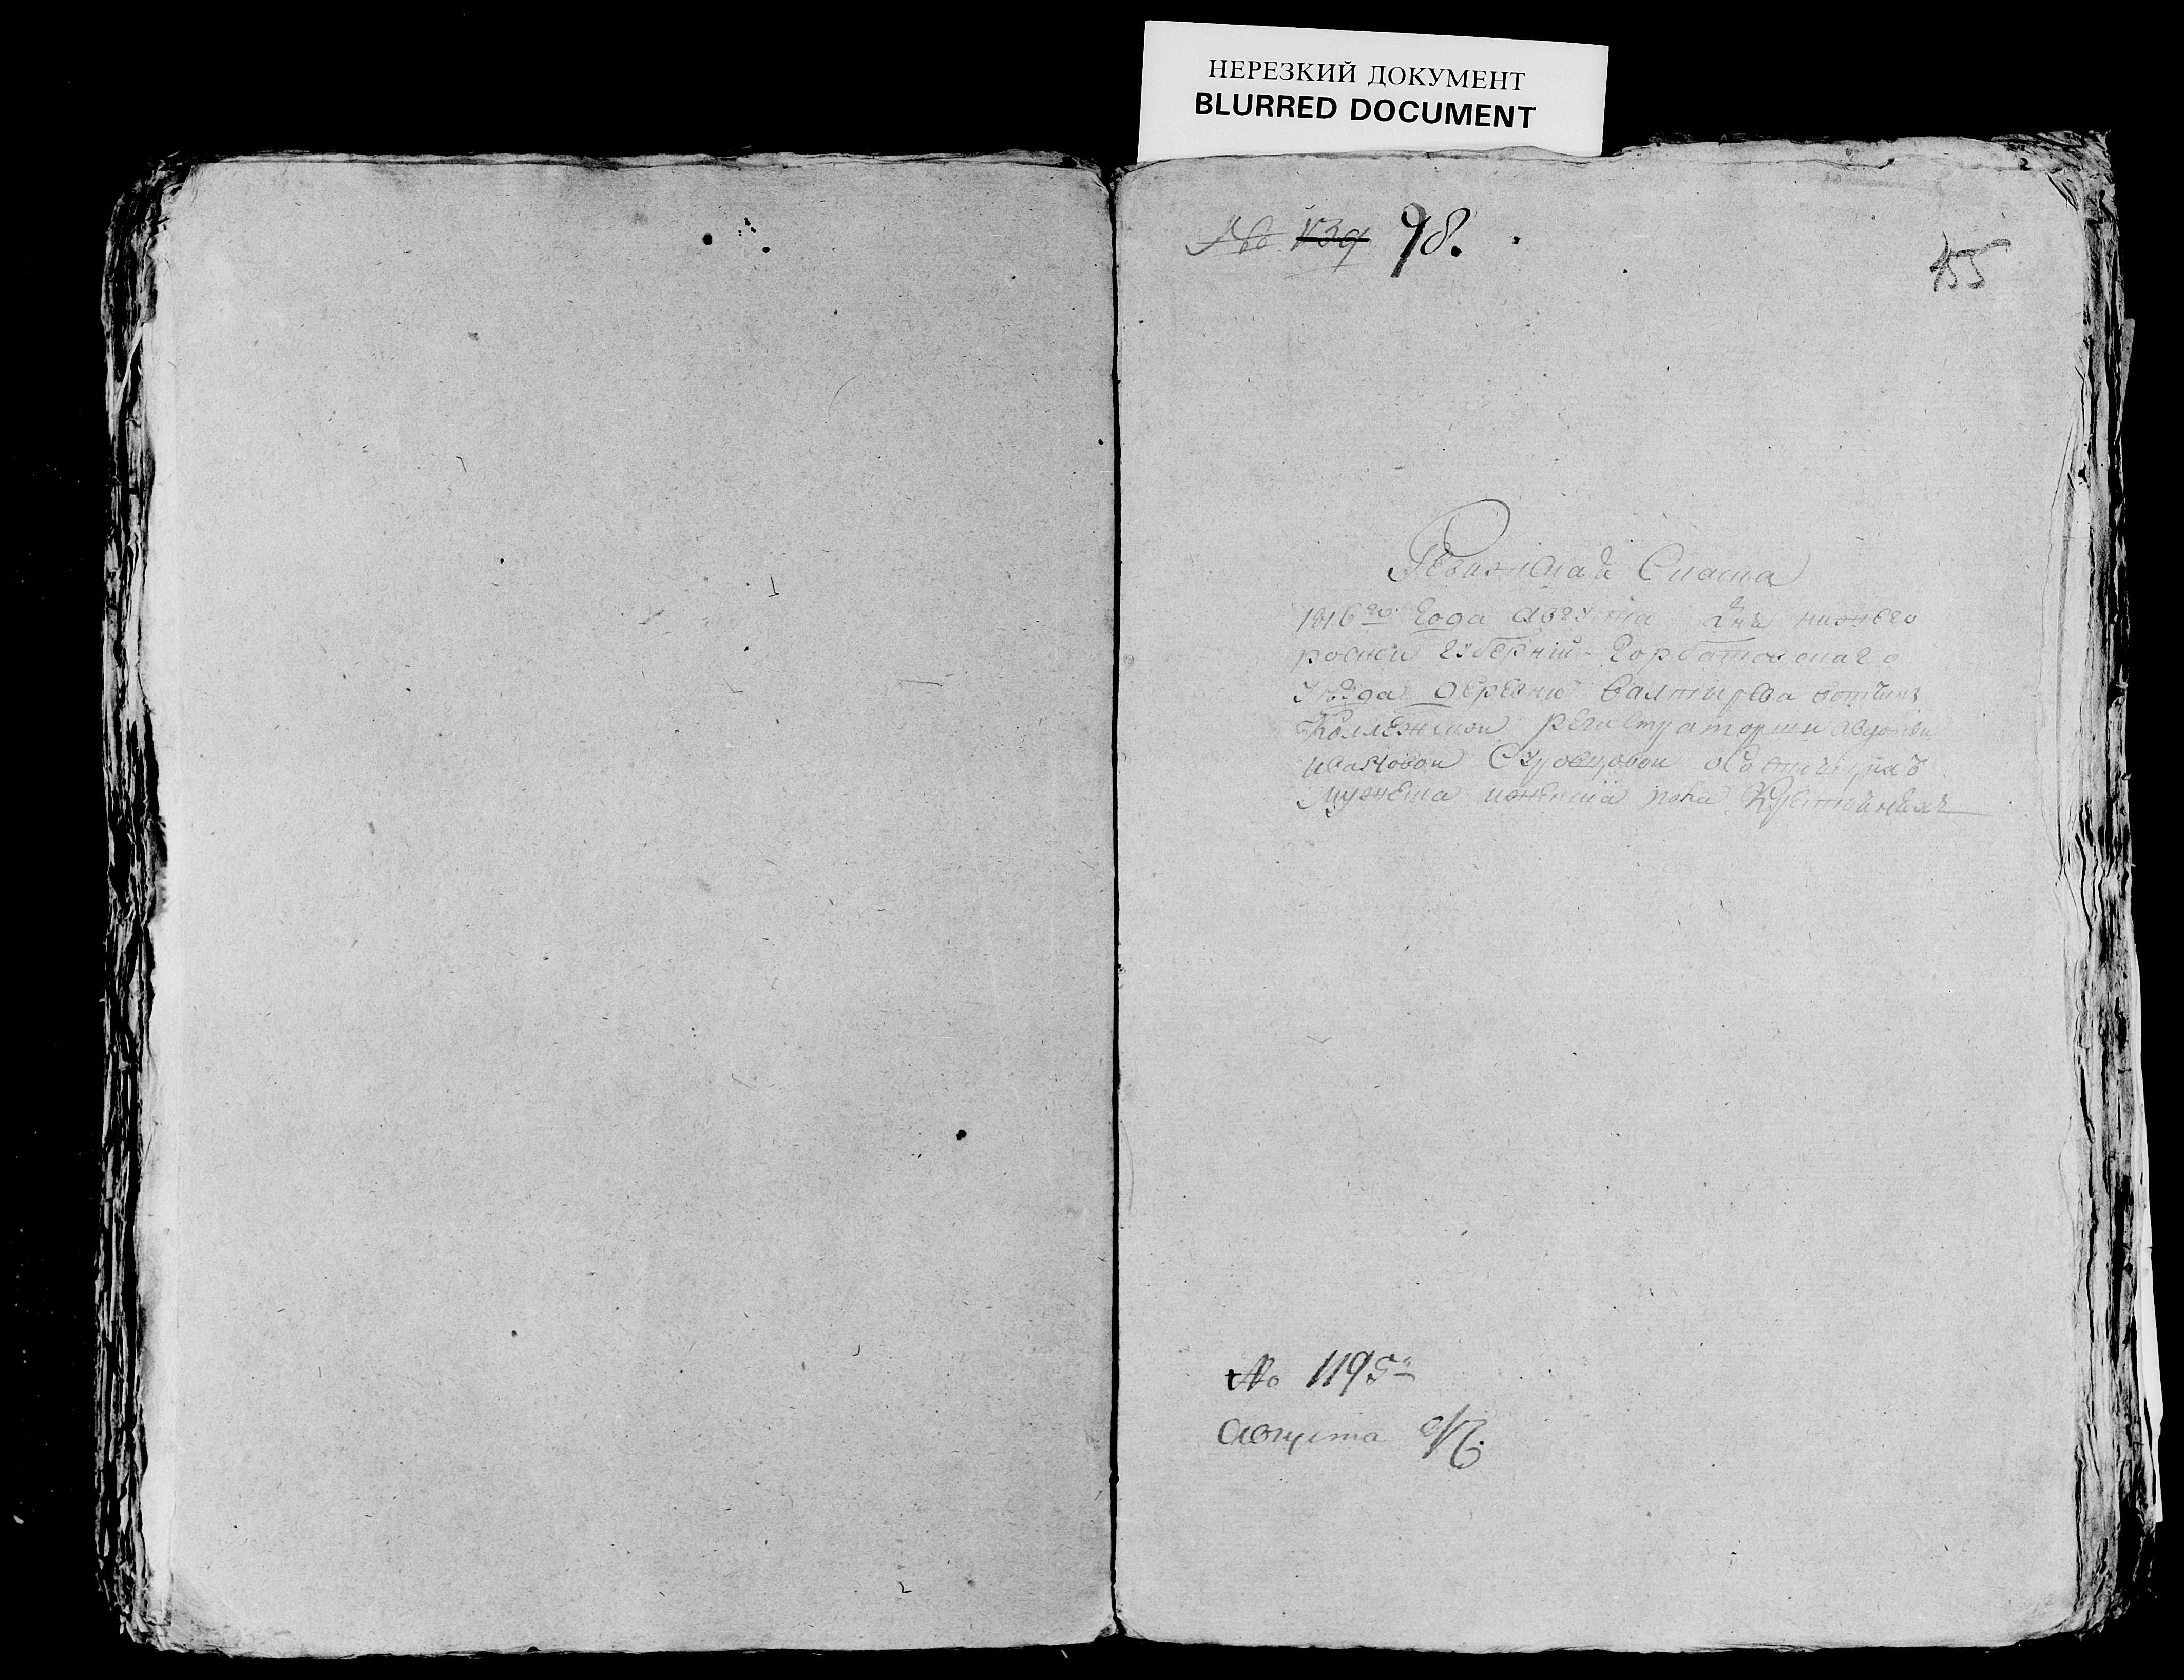 НЕРЕЗКИЙ ДОКУМЕНТ
BLURRED DOCUMENT
№ 139 98.
455
Ревизская Скаска
1816го Года августа дня нижего
роцкой губернии Горбатовскаго
уезда деревни вотчины
Коллежской регистраторши
ивановой о состоящих
мужеска и женска пола
№ 1195й
Августа